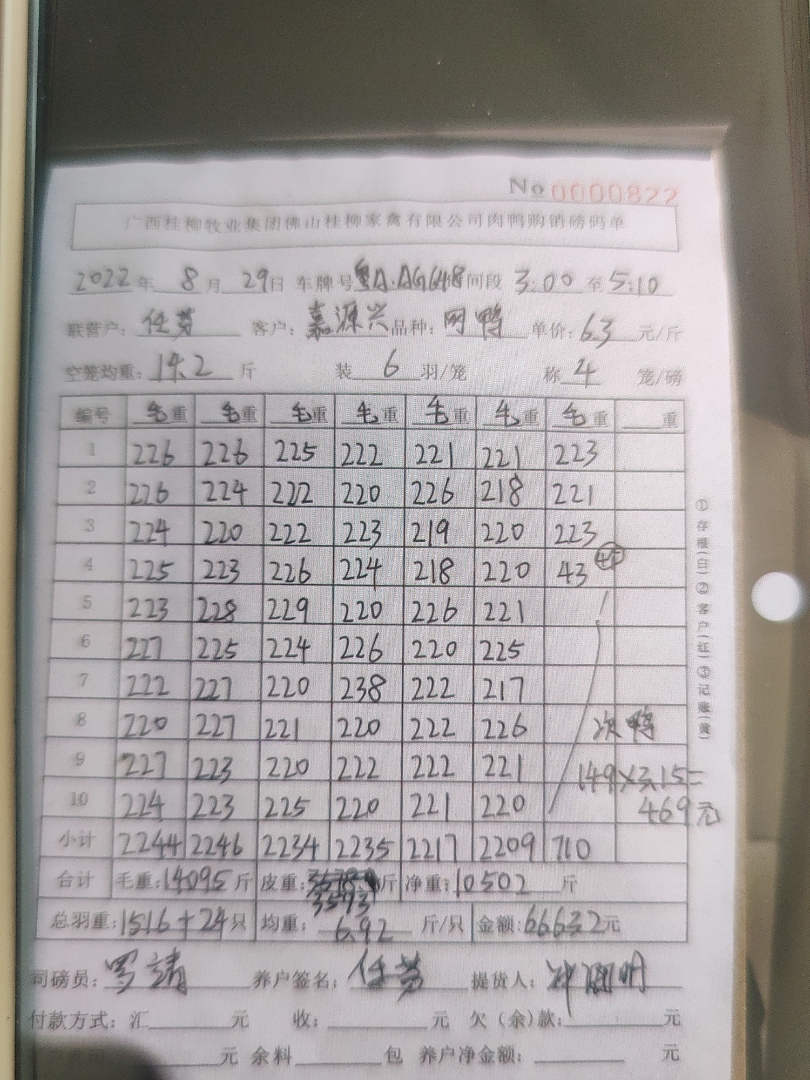 No 0000822
广西桂柳牧业集团佛山桂柳家禽有限公司肉鸭购销磅码单
2022年 8月 29日 车牌号粤A·AG648 间段 3:00 至 5:10
联营户: 任芬 客户: 嘉源兴 品种: 网鸭 单价: 6.3 元/斤
空笼均重: 14.2 斤 装 6 羽/笼 称 4 笼/磅
编号 毛重 毛重 毛重 毛重 毛重 毛重 毛重 重
1 226 226 225 222 221 221 223
2 226 224 222 220 226 218 221
3 224 220 222 223 219 220 223
4 225 223 226 224 218 220 43
5 223 228 229 220 226 221
6 227 225 224 226 220 225
7 222 227 220 238 222 217
8 220 227 221 220 222 226 次鸭
9 227 223 220 222 222 221 149×3.15=
10 224 223 225 220 221 220 469元
小计 2244 2246 2234 2235 2217 2209 710
合计 毛重: 14095 斤 皮重: 斤 净重: 10502 斤
3593
总羽重: 1516+24只 均重: 6.92 斤/只 金额: 66632元
司磅员: 养户签名: 任芬 提货人:
付款方式: 汇 元 收: 元 欠(余)款: 元
元 余料 包 养户净金额: 元
①存根(白)②客户(红)③记账(黄)